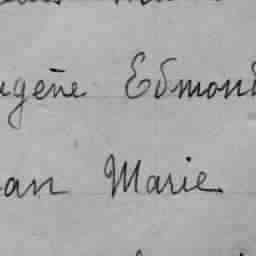 ugène Edmond
an Marie